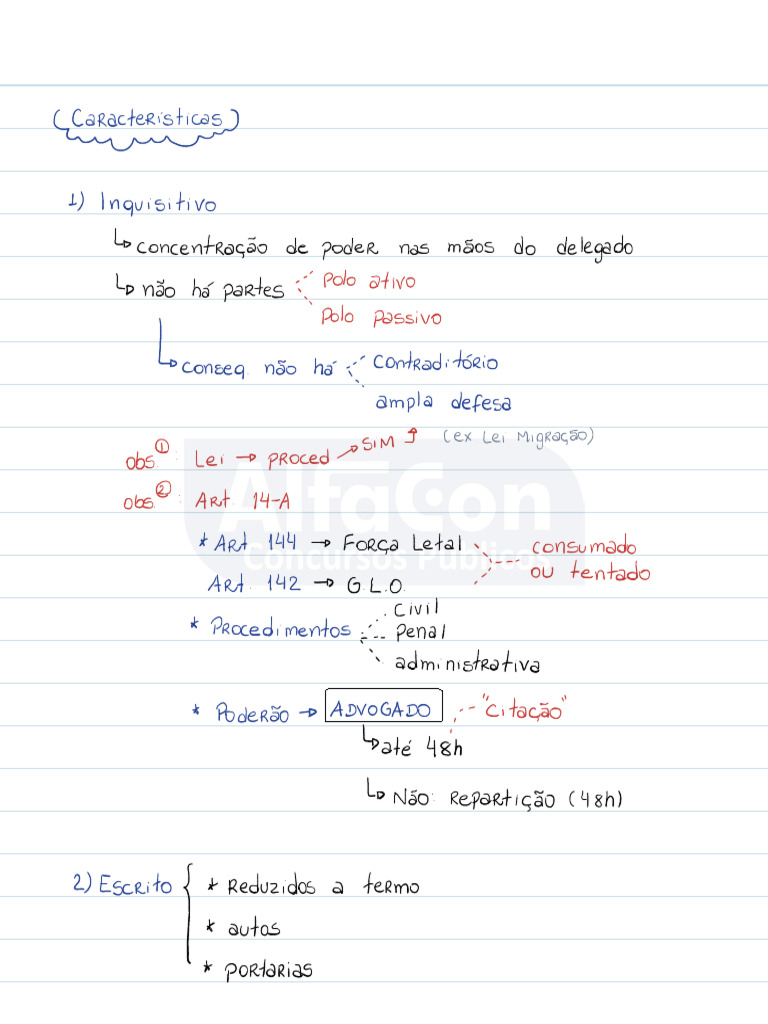 (Características)
1) Inquisitivo
↳ concentração de poder nas mãos do delegado
↳ não há partes Polo ativo
Polo passivo
↳ conseq. não há contraditório
ampla defesa
obs. ①: Lei → proced → SIM (ex Lei Migração)
obs. ②: Art. 14-A
* Art. 144 → Força Letal consumado
ou tentado
Art. 142 → G.L.O.
* Procedimentos civil
penal
administrativa
* Poderão → ADVOGADO "citação"
↳ até 48h
↳ Não: Repartição (48h)
2) Escrito { * Reduzidos a termo
* autos
* portarias
AlfaCon
Concursos Públicos